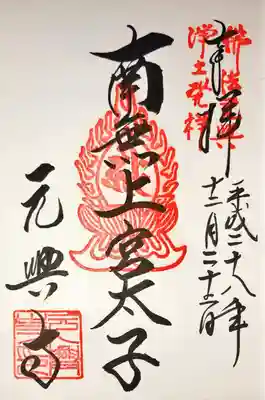 奉拝
浄土発祥
平成二十八年
十二月二十五日
南無上宮太子
元興寺